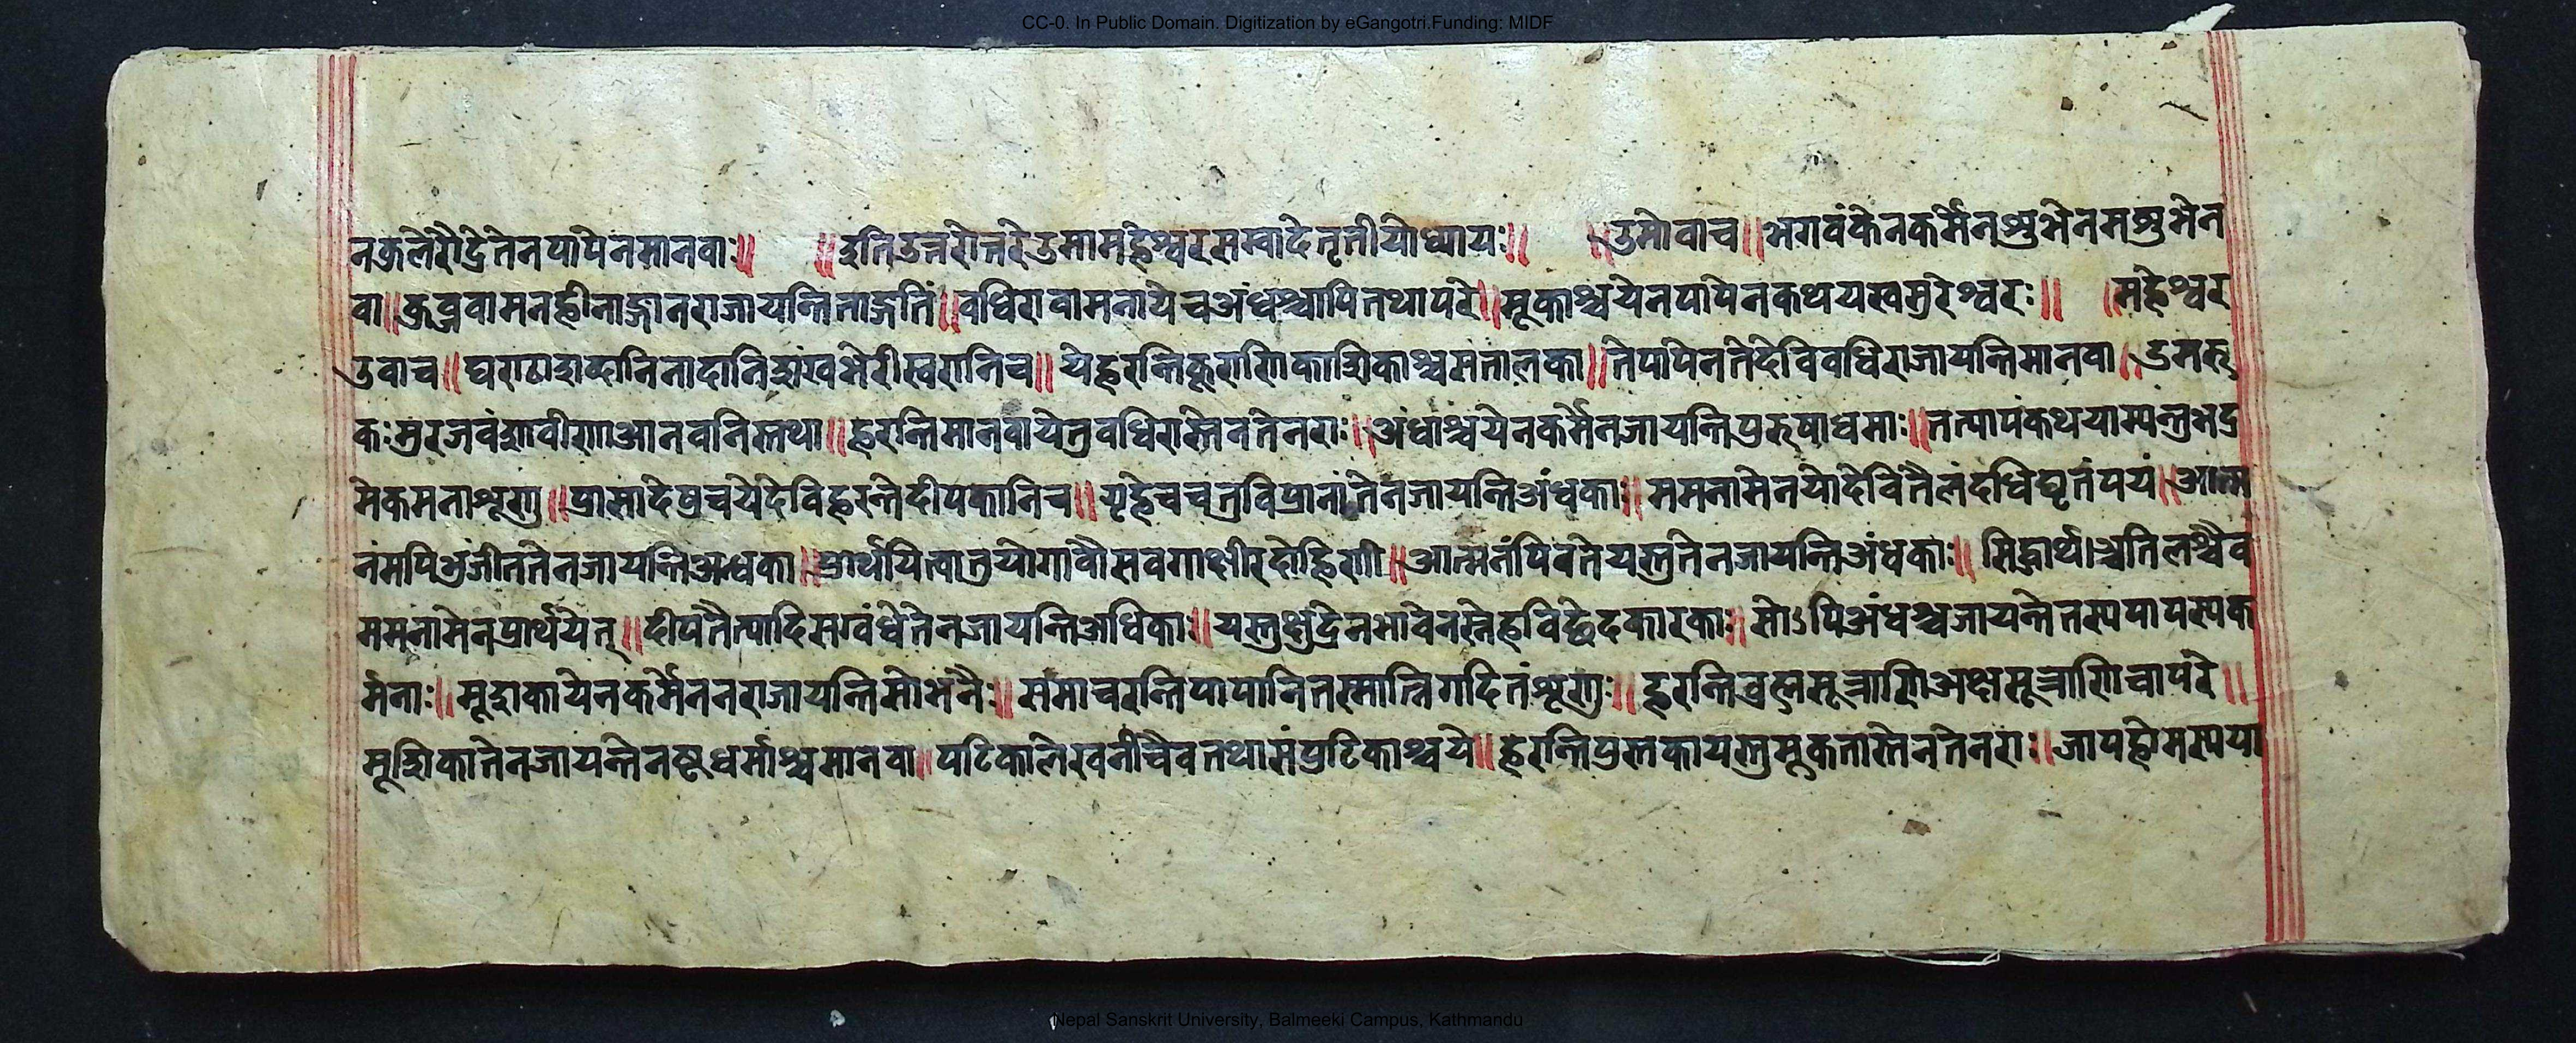 CC-0. In Public Domain. Digitization by eGangotri.Funding: MIDF
नकुलेरौद्रेतेनपापेनमानवाः॥ ॥इतिउत्तरोत्तरेउमामहेश्वरसम्वादेतृतीयोध्यायः॥ ॥उमोवाच॥भगवंकेनकर्मेनशुभेनमशुभेन
वा॥कुब्जवामनहीनाङ्गानराजायन्तिताङ्गतिं॥वधिरावामनायेचअंधश्चापितथापरे॥मूकाश्चयेनपापेनकथयस्वसुरेश्वरः॥ ॥महेश्वर
उवाच॥घराठाशब्दानिनादानिशंखभेरीस्वरानिच॥येहरन्ति काशिकाश्चसतालका॥तेपापेनतेदेविवधिराजायन्तिमानवा॥डमरु
कःमुरजवंशवीणाआनवानिस्तथा॥हरन्तिमानवायेतुवधिरास्तेनतेनराः॥अंधाश्चयेनकर्मेनजायन्तिपुरुषाधमाः॥तत्पापंकथयाम्यन्तुभद्र
मेकमनाशृणु॥प्रासादेषुचयेदेविहरन्तेदीपकानिच॥गृहेचचतुविप्रानांतेनजायन्तिअंधकाः॥ममनामेनयोदेवितैलंदधिघृतंपयं॥आत्म
नंमपिभुंजीततेनजायन्तिअन्धका॥प्रार्थयित्वातुयोगावौसवगाक्षीरदोहिणी॥आत्मनंपिवतेयस्तुतेनजायन्तिअंधकाः॥सिद्धार्थाश्चतिलश्चैव
ममनामेनप्रार्थयेत्॥दीपतैत्यादिसग्वंधेतेनजायन्तिअधिकाः॥यस्तुक्षुद्रेनभावेनस्नेहविछेदकारकाः॥सोऽपिअंधश्चजायन्तेतस्यपापस्यक
र्मनाः॥मूढाकायेनकर्मेननराजायन्तिसोभनैः॥संमाचरन्तिपापानितस्मान्निगदितंशृणुः॥हरन्तिव्रह्मसूत्राणिअक्षसूत्राणिचापरे॥
मूढिकातेनजायन्तेनष्टधर्माश्चमानवा॥पटिकालेखनीचैवतथासंपुटिकाश्चये॥हरन्तिपुस्तकायस्तुमूकतास्तेनतेनराः॥जापहोमस्यया
Nepal Sanskrit University, Balmeeki Campus, Kathmandu